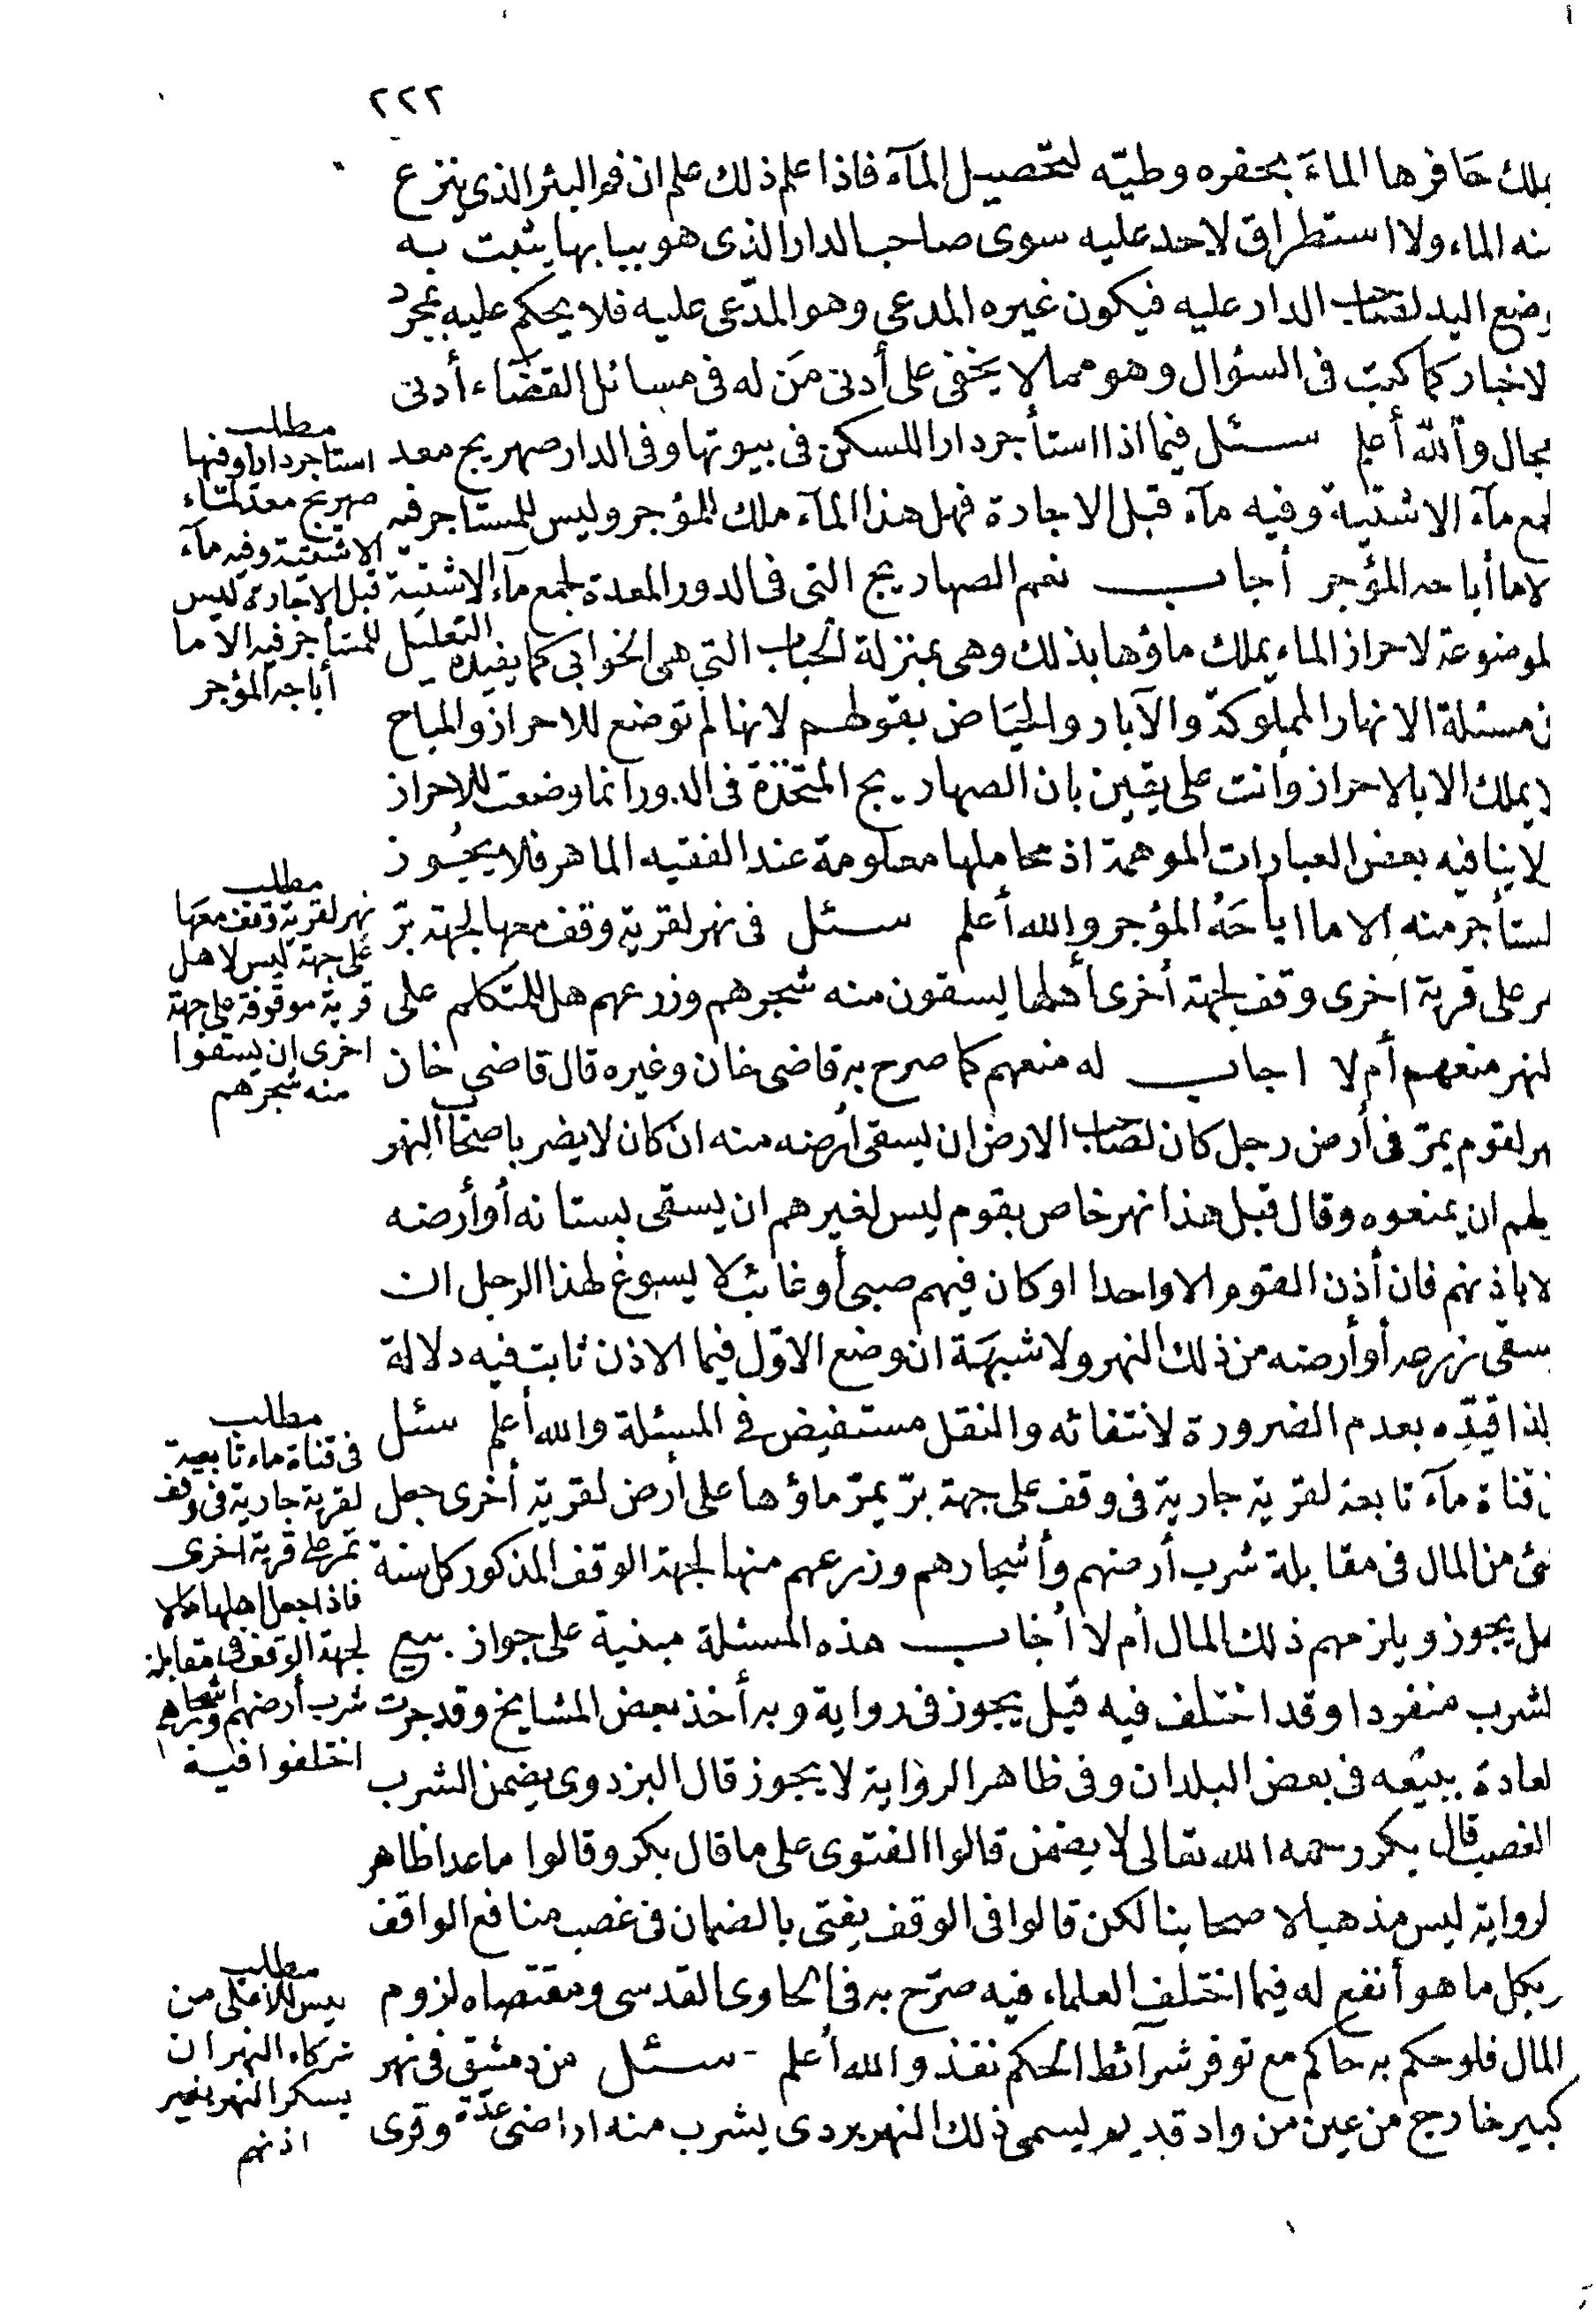 ٢٢٢
يملك حافرها الماءَ بحفره وطيّه لتحصيل المآء فاذا علم ذلك علم ان فم البئر الذى ينزع
منه الماء ولا استطراق لاحد عليه سوى صاحب الدار الذى هو ببابها يثبت به
وضع اليد لصاحب الدار عليه فيكون غيره المدعى وهو المدّعى عليه فلا يحكم عليه بمجرد
الاخبار كما كتب فى السؤال وهو مما لا يخفى على أدنى مَن له فى مسائل القضاء أدنى
مجال والله أعلم سئل فيما اذا استأجر دارا للسكن فى بيوتها وفى الدار صهريج معد
لجمع مآء الاشتية وفيه مآء قبل الاجارة فهل هذا المآء ملك للمؤجر وليس للمستاجر فيه
الا ما أباحه المؤجر أجاب نعم الصهاريج التى فى الدور المعدة لجمع مآء الاشتية
الموضوعة لاحراز الماء يملك ماؤها بذلك وهى بمنزلة الحباب التى هى الخوابى كما يفيده التعليل
فى مسئلة الانهار المملوكة والآبار والحيَاض بقولهم لانها لم توضع للاحراز والمباح
لا يملك الا بالاحراز وانت على يقين بان الصهاريج المتخذة فى الدور انما وضعت للاحراز
ولا ينافيه بعض العبارات الموهمة اذ محاملها معلومة عند الفقيه الماهر فلا يجوز
للمستأجر منه الا ما اباحَهُ المؤجر والله أعلم سئل فى نهر لقرية وقف معها لجهة برّ
يمر على قرية اخرى وقف لجهة أخرى أهلها يسقون منه شجرهم وزرعهم هل للمتكلم على
النهر منعهم أم لا اجاب له منعهم كما صرح به قاضى خان وغيره قال قاضى خان
نهر لقوم يمرّ فى أرض رجل كان لصاحب الارض ان يسقى أرضه منه ان كان لا يضر باصحاب النهر
ولهم ان يمنعوه وقال قبل هذا نهر خاص بقوم ليس لغيرهم ان يسقى بستانه أو أرضه
الا باذنهم فان أذن القوم الا واحدا او كان فيهم صبى أو غائب لا يسوغ لهذا الرجل ان
يسقى زرعه أو أرضه من ذلك النهر ولا شبهَة ان وضع الاوّل فيما الاذن ثابت فيه دلالة
ولذا قيّده بعدم الضرورة لانتفائه والنقل مستفيض فى المسئلة والله أعلم سئل
فى قناة مآء تابعة لقرية جارية فى وقف على جهة برّ يمرّ ماؤها على أرض لقرية أخرى جعل
شئ من المال فى مقابلة شرب أرضهم وأشجارهم وزرعهم منها لجهة الوقف المذكور كل سنة
هل يجوز ويلزمهم ذلك المال أم لا أجاب هذه المسئلة مبنية على جواز بيع
الشرب منفردا وقد اختلف فيه قيل يجوز فى رواية وبه أخذ بعض المشايخ وقد جرت
العادة ببيعه فى بعض البلدان وفى ظاهر الرواية لا يجوز قال البزدوى يضمن الشرب
بالغصب قال بكر رحمه الله تعالى لا يضمن قالوا الفتوى على ما قال بكر وقالوا ما عدا ظاهر
الرواية ليس مذهبا لاصحابنا لكن قالوا فى الوقف يفتى بالضمان فى غصب منافع الواقف
وبكل ما هو أنفع له فيما اختلف العلماء فيه صرّح به فى الحاوى القدسى ومقتضاه لزوم
المال فلو حكم به حاكم مع توفر شرآئط الحكم نفذ والله أعلم سئل من دمشق فى نهر
كبير خارج من عين من واد قديم يسمى ذلك النهر بردى يشرب منه اراضى عدّة وقرى
مطلب
استاجر دارا وفيها
صهريج معد لماء
الاشتية وفيه مآء
قبل الاجارة ليس
للمستأجر فيه الا ما
أباحه المؤجر
مطلب
نهر لقرية وقف معها
على جهة ليس لاهل
قرية موقوفة على جهة
اخرى ان يسقوا
منه شجرهم
مطلب
فى قناة ماء تابعة
لقرية جارية فى وقف
تمر على قرية اخرى
فاذا جعل اهلها مالا
لجهة الوقف فى مقابلة
شرب أرضهم وأشجارهم
اختلفوا فيه
مطلب
ليس للاعلى من
شركاء النهر ان
يسكر النهر بغير
اذنهم